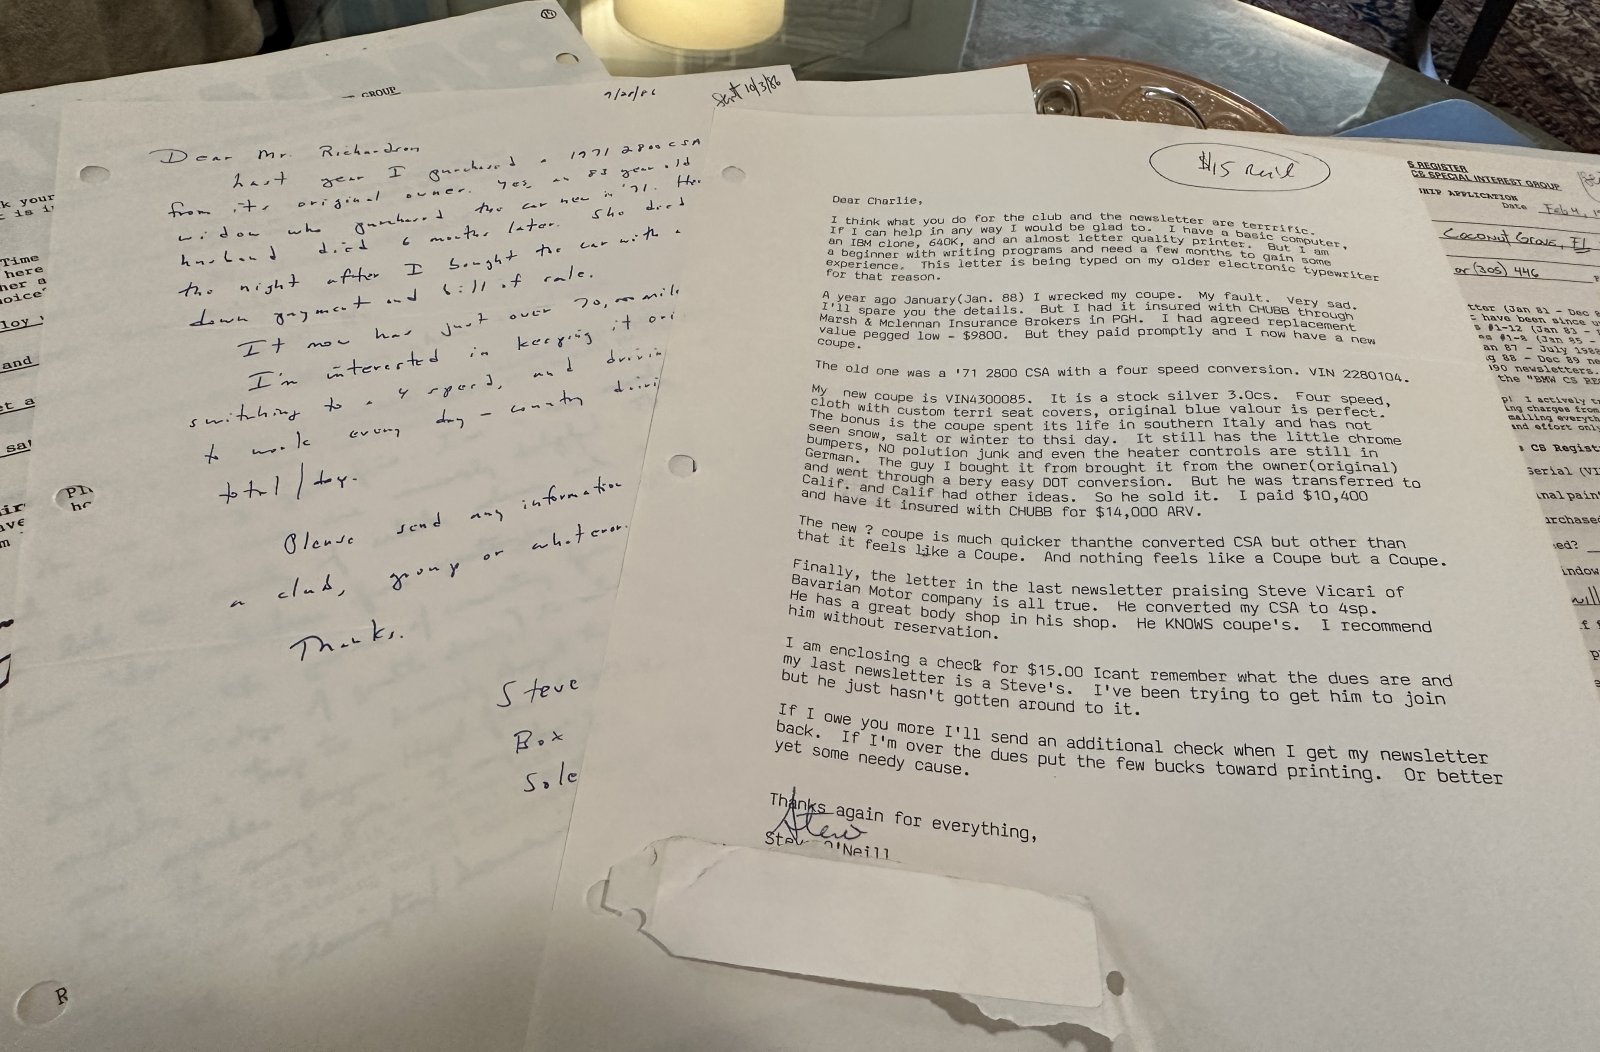 17
GROUP
9/28/86
Sent 10/3/86
Dear Mr. Richardson
Last year I purchased a 1971 2800 CSA
from its original owner. Yes, an 83 year old
widow who purchased the car new in '71. Her
husband died 6 months later. She died
the night after I bought the car with a
down payment and bill of sale.
It now has just over 70,000 mil
I'm interested in keeping it ori
switching to a 4 speed, and drivin
to work every day - country drivi
total/day.
Please send any information
a club, group or whatever.
Thanks.
Steve
Box
Sole
k your
t is i
Time
here
her a
oice"
loy
and
et a
sa
ir
ave
m
Pl
ho
R
$15 recd
Dear Charlie,
I think what you do for the club and the newsletter are terrrific.
If I can help in any way I would be glad to. I have a basic computer,
an IBM clone, 640K, and an almost letter quality printer. But I am
a beginner with writing programs and need a few months to gain some
experience. This letter is being typed on my older electronic typewriter
for that reason.
A year ago January(Jan. 88) I wrecked my coupe. My fault. Very sad.
I'll spare you the details. But I had it insured with CHUBB through
Marsh & Mclennan Insurance Brokers in PGH. I had agreed replacement
value pegged low - $9800. But they paid promptly and I now have a new
coupe.
The old one was a '71 2800 CSA with a four speed conversion. VIN 2280104.
My new coupe is VIN4300085. It is a stock silver 3.0cs. Four speed,
cloth with custom terri seat covers, original blue valour is perfect.
The bonus is the coupe spent its life in southern Italy and has not
seen snow, salt or winter to thsi day. It still has the little chrome
bumpers, NO polution junk and even the heater controls are still in
German. The guy I bought it from brought it from the owner(original)
and went through a bery easy DOT conversion. But he was transferred to
Calif. and Calif had other ideas. So he sold it. I paid $10,400
and have it insured with CHUBB for $14,000 ARV.
The new ? coupe is much quicker thanthe converted CSA but other than
that it feels like a Coupe. And nothing feels like a Coupe but a Coupe.
Finally, the letter in the last newsletter praising Steve Vicari of
Bavarian Motor company is all true. He converted my CSA to 4sp.
He has a great body shop in his shop. He KNOWS coupe's. I recommend
him without reservation.
I am enclosing a check for $15.00 Icant remember what the dues are and
my last newsletter is a Steve's. I've been trying to get him to join
but he just hasn't gotten around to it.
If I owe you more I'll send an additional check when I get my newsletter
back. If I'm over the dues put the few bucks toward printing. Or better
yet some needy cause.
Thanks again for everything,
Steve
Steve O'Neill
S REGISTER
CS SPECIAL INTEREST GROUP
SHIP APPLICATION
Date Feb 4, 1
Coconut Grove, FL
or (305) 446
tter (Jan 81 - Dec 8
have been since u
s #1-12 (Jan 83 -
es #1-8 (Jan 85 -
an 87 - July 1988
g 88 - Dec 89 ne
90 newsletters.
the "BMW CS RE
p! I actively t
ing charges from
mailing everyth
and effort only
CS Regist
Serial (VI
nal pain
urchase
ed?
indow